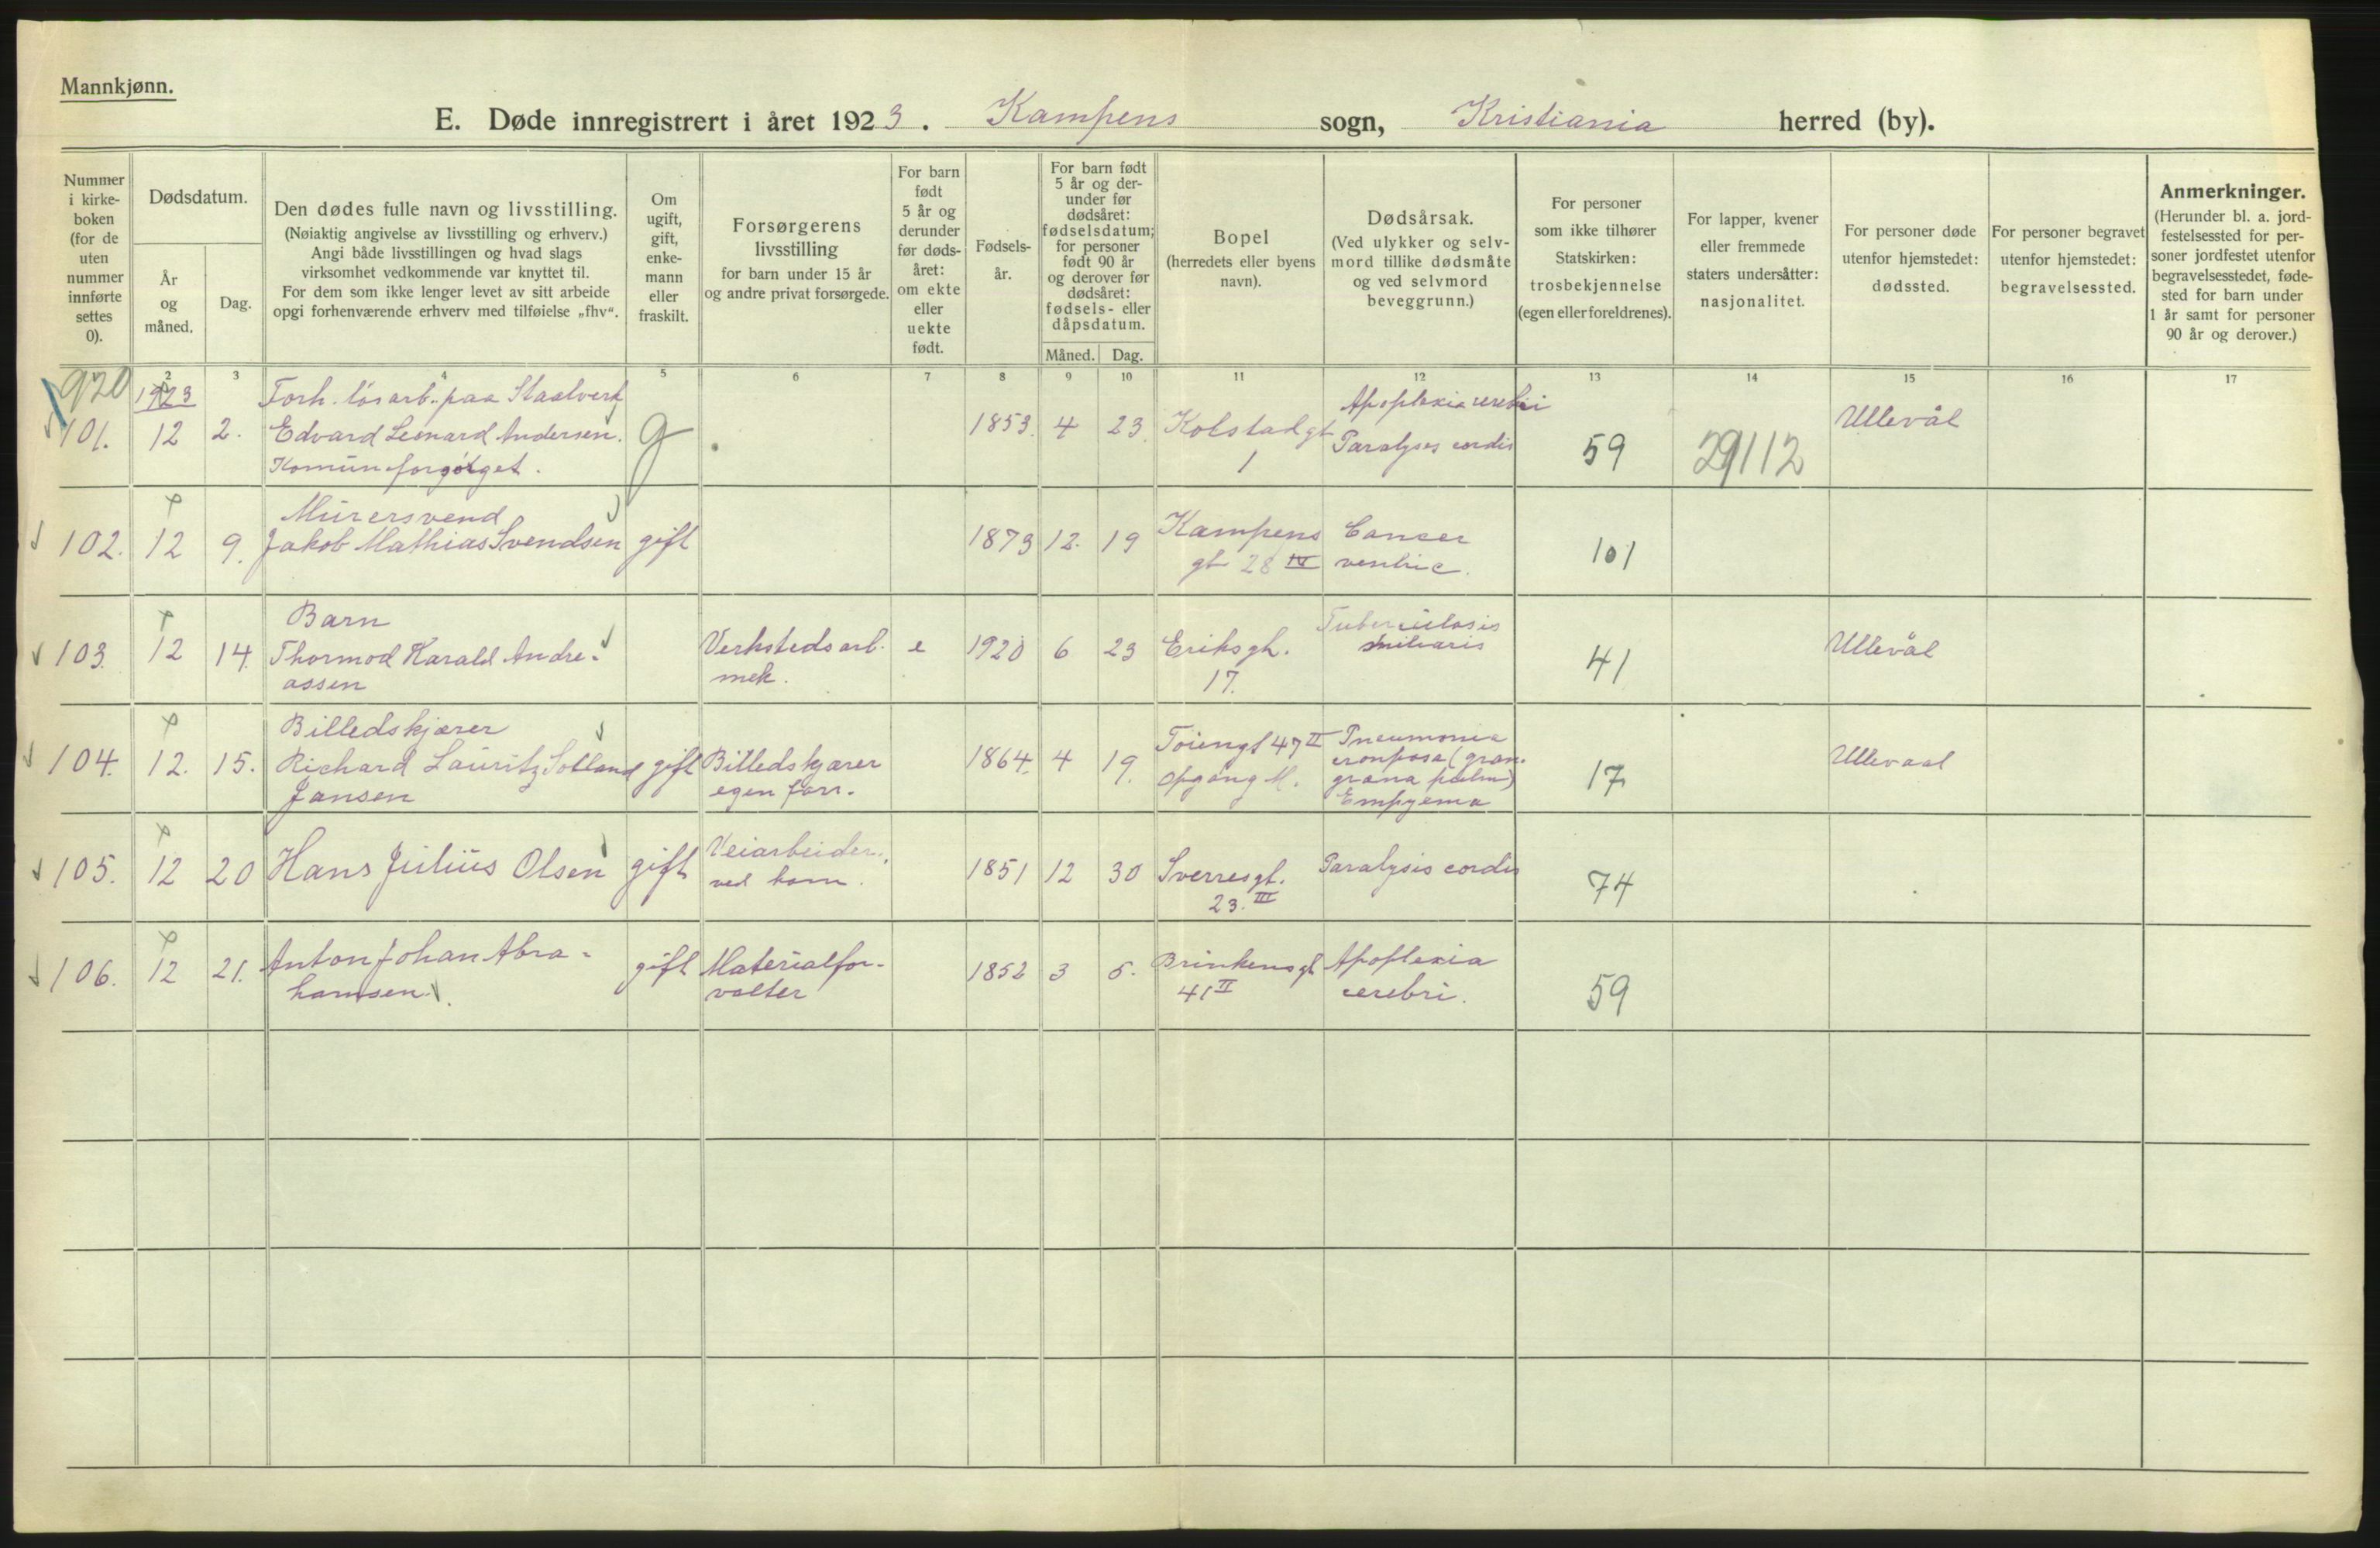 Mannkjønn.
E. Døde innregistrert i året 1923. Kampens sogn, Kristiania herred (by).
Nummer i kirke-boken (for de uten nummer innførte settes 0).
Dødsdatum.
År og måned.
Dag.
Den dødes fulle navn og livsstilling.
(Nøiaktig angivelse av livsstilling og erhverv.)
Angi både livsstillingen og hvad slags
virksomhet vedkommende var knyttet til.
For dem som ikke lenger levet av sitt arbeide
opgi forhenværende erhverv med tilføielse „fhv“.
Om ugift, gift, enke-mann eller fraskilt.
Forsørgerens livsstilling
for barn under 15 år
og andre privat forsørgede.
For barn født 5 år og derunder før døds-året: om ekte eller uekte født.
Fødsels-år.
For barn født 5 år og der-under før dødsåret: fødselsdatum; for personer født 90 år og derover før dødsåret: fødsels- eller dåpsdatum.
Måned.
Dag.
Bopel
(herredets eller byens navn).
Dødsårsak.
(Ved ulykker og selv-mord tillike dødsmåte og ved selvmord beveggrunn.)
For personer som ikke tilhører Statskirken: trosbekjennelse (egen eller foreldrenes).
For lapper, kvener eller fremmede staters undersåtter: nasjonalitet.
For personer døde utenfor hjemstedet: dødssted.
For personer begravet utenfor hjemstedet: begravelsessted.
Anmerkninger.
(Herunder bl. a. jord-festelsessted for per-soner jordfestet utenfor begravelsesstedet, føde-sted for barn under 1 år samt for personer 90 år og derover.)
2 3 4 5 6 7 8 9 10 11 12 13 14 15 16 17
920 1923 Forh. løsarb. paa Staalverk Apoplexia cerebri
101. 12 2. Edvard Leonard Andersen. g 1853. 4 23. Kolstadgt 1 Paralyses cordis 59 29112 Ullevål
Komune forsørget.
Murersvend
102. 12 9. Jakob Mathias Svendsen gift 1873 12. 19 Kampens gt 28 IV Cancer ventric. 101
Barn
103. 12 14. Thormod Harald Andre- Verkstedsarb. e 1920 6 23 Eriksgt. 17. Tuberculosis miliaris 41 Ullevål
assen mek.
Billedskjærer
104. 12. 15. Richard Lauritz Solland gift Billedskjærer 1864. 4 19. Toiengt 47 II Pneumonia 17 Ullevaal
Jansen egen forr. opgang M. crouposa (gran-
græna pulm)
Empyema
105. 12 20 Hans Julius Olsen gift Veiarbeider 1851 12 30 Sverresgt. 23. III Paralysis cordis 74
ved kom.
106. 12 21. Anton Johan Abra- gift Materialfor- 1852 3 5. Brinkensgt Apoplexia 59
hamsen. valter 41 II cerebri.